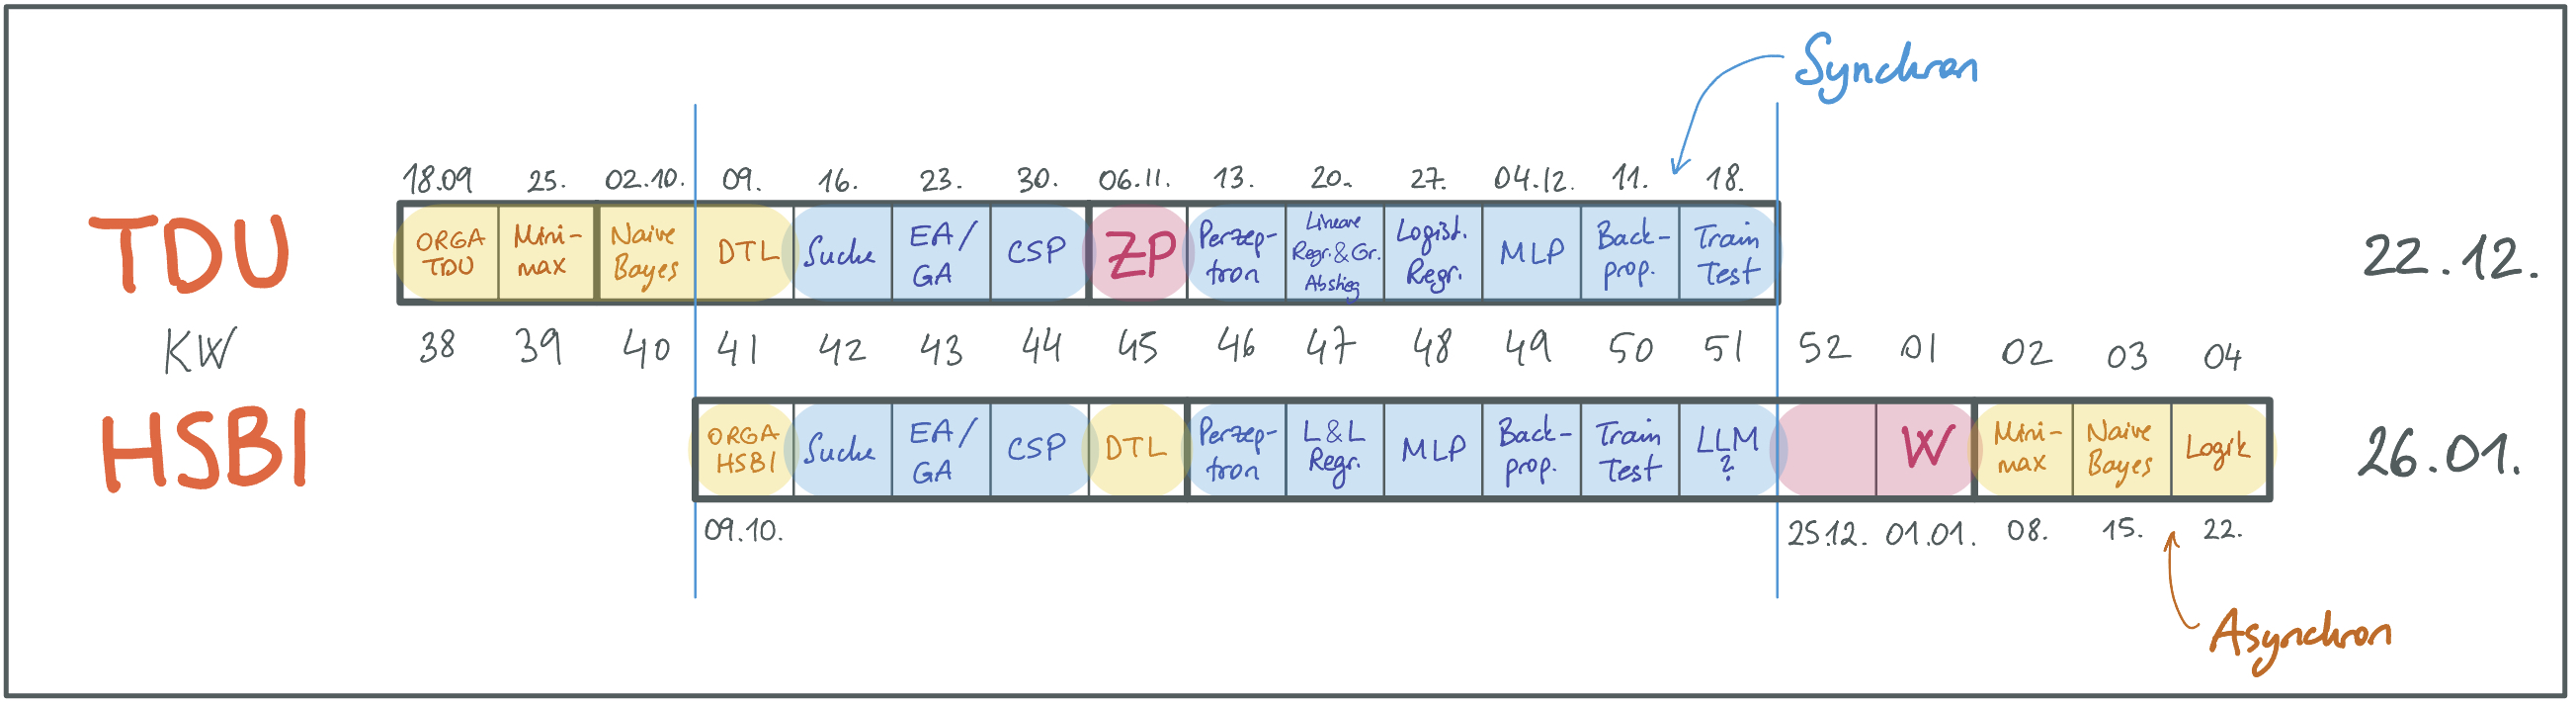 Synchron
18.09 25. 02.10. 09. 16. 23. 30. 06.11. 13. 20. 27. 04.12. 11. 18.
TDU
ORGA
TDU
Mini-
max
Naive
Bayes
DTL
Suche
EA/
GA
CSP
ZP
Perzep-
tron
Lineare
Regr.&Gr.
Abstieg
Logist.
Regr.
MLP
Back-
prop.
Train
Test
22.12.
KW 38 39 40 41 42 43 44 45 46 47 48 49 50 51 52 01 02 03 04
HSBI
ORGA
HSBI
Suche
EA/
GA
CSP
DTL
Perzep-
tron
L&L
Regr.
MLP
Back-
prop.
Train
Test
LLM
?
W
Mini-
max
Naive
Bayes
Logik
26.01.
09.10. 25.12. 01.01. 08. 15. 22.
Asynchron